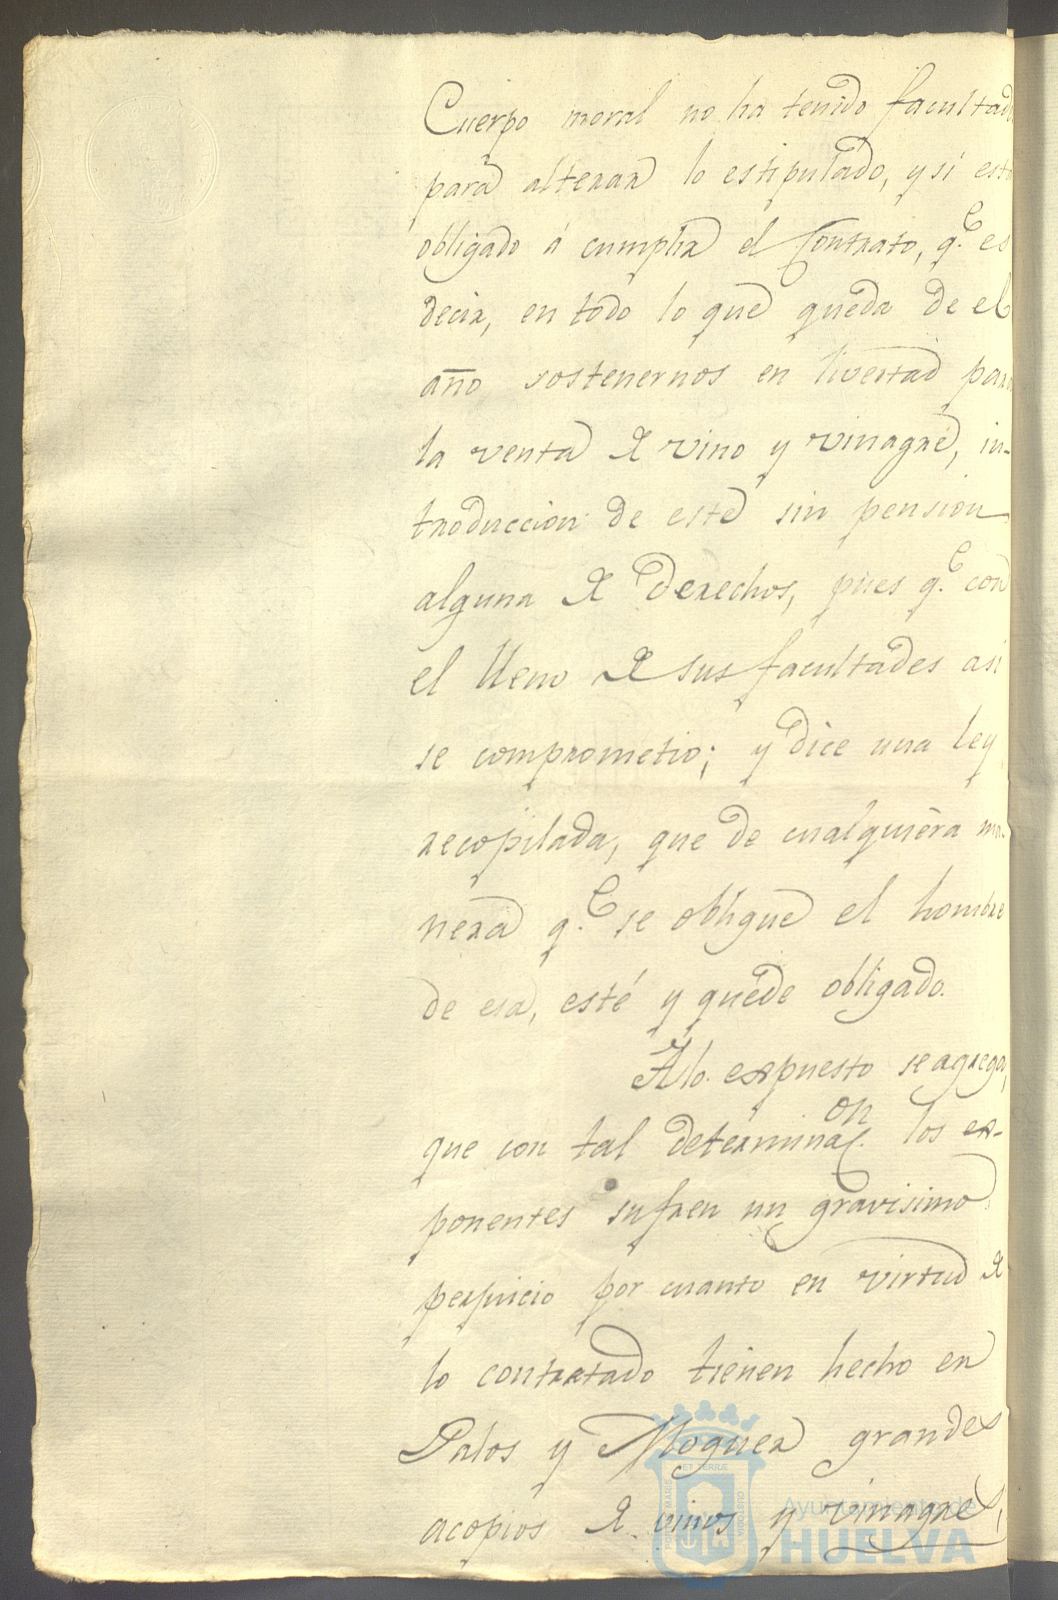 Cuerpo moral no ha tenido facultad
para alterar lo estipulado, y si está
obligado á cumplir el Contrato, q.e es
decir, en todo lo que queda de el
año sostenernos en livertad para
la venta de vino y vinagre, in-
troduccion de este sin pension
alguna de derechos, pues q.e con
el lleno de sus facultades asi
se comprometio; y dice una ley
recopilada, que de cualquiera ma-
nera q.e se obligue el hombre
de esa, esté y quede obligado.
A lo expuesto se agrega,
que con tal determinaç.on los ex-
ponentes sufren un gravisimo
perjuicio por cuanto en virtud de
lo contratado tienen hecho en
Palos y Moguer grandes
acopios de vinos y vinagres,
Ayuntamiento de
HUELVA